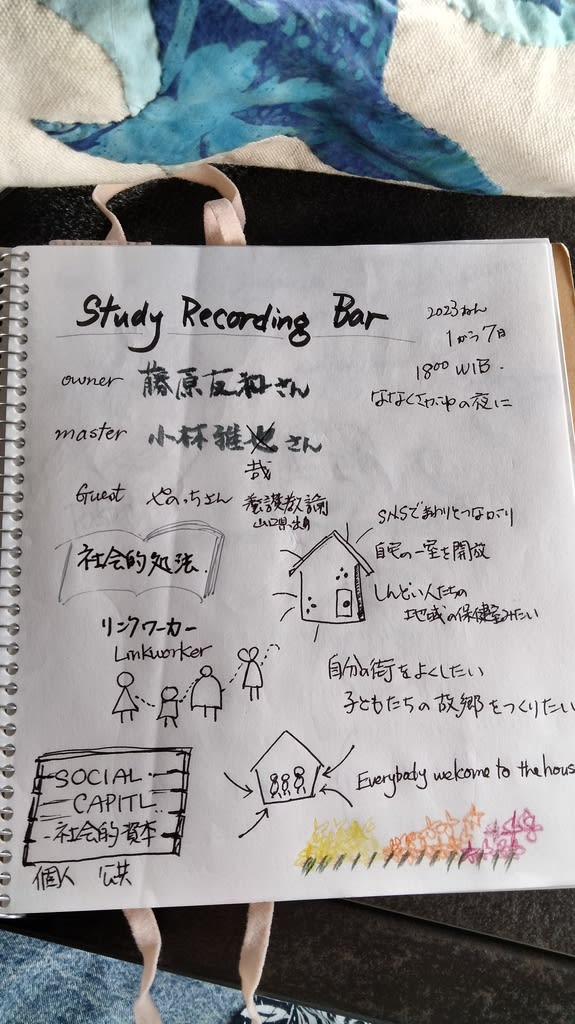 Study Recording Bar
2023ねん
1がつ7日
18⁰⁰ WIB.
ななくさがゆの夜に
owner 藤原友和さん
master 小林雅也さん
哉
Guest やのっちさん 養護教諭
山口県出身
社会的処法
SNSでまわりとつながり
自宅の一室を開放
しんどい人たちの
地域の保健室みたい
リンクワーカー
Linkworker
自分の街をよくしたい
子どもたちの故郷をつくりたい
SOCIAL
CAPITL
社会的資本
個人 公共
Everybody welcome to the hous